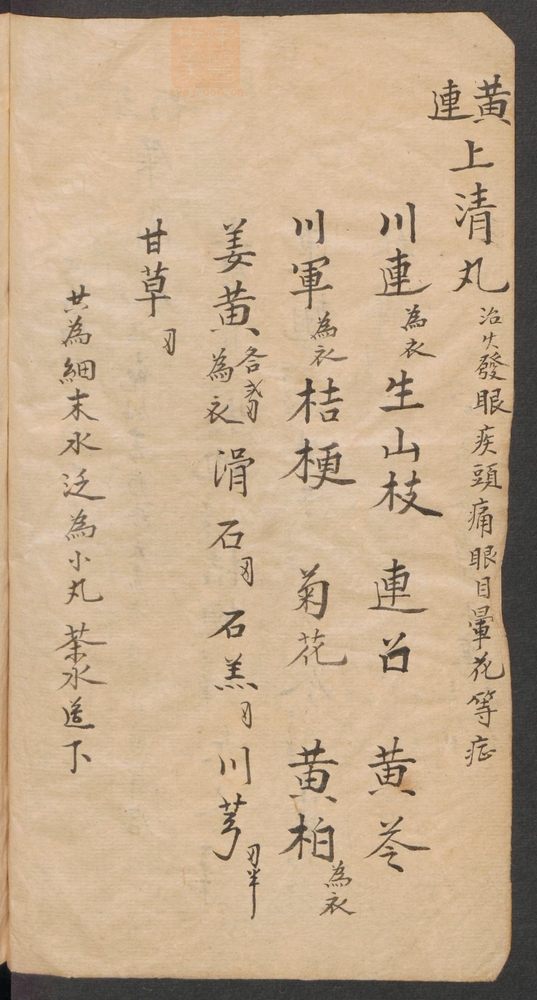 黃連上清丸 治火發眼疾頭痛眼目暈花等症
川連為衣 生山枝 連召 黃芩
川軍為衣 桔梗 菊花 黃柏為衣
姜黃各 為衣 滑石刄 石羔刄 川芎刄半
甘草刄
共為細末水泛為小丸茶水送下